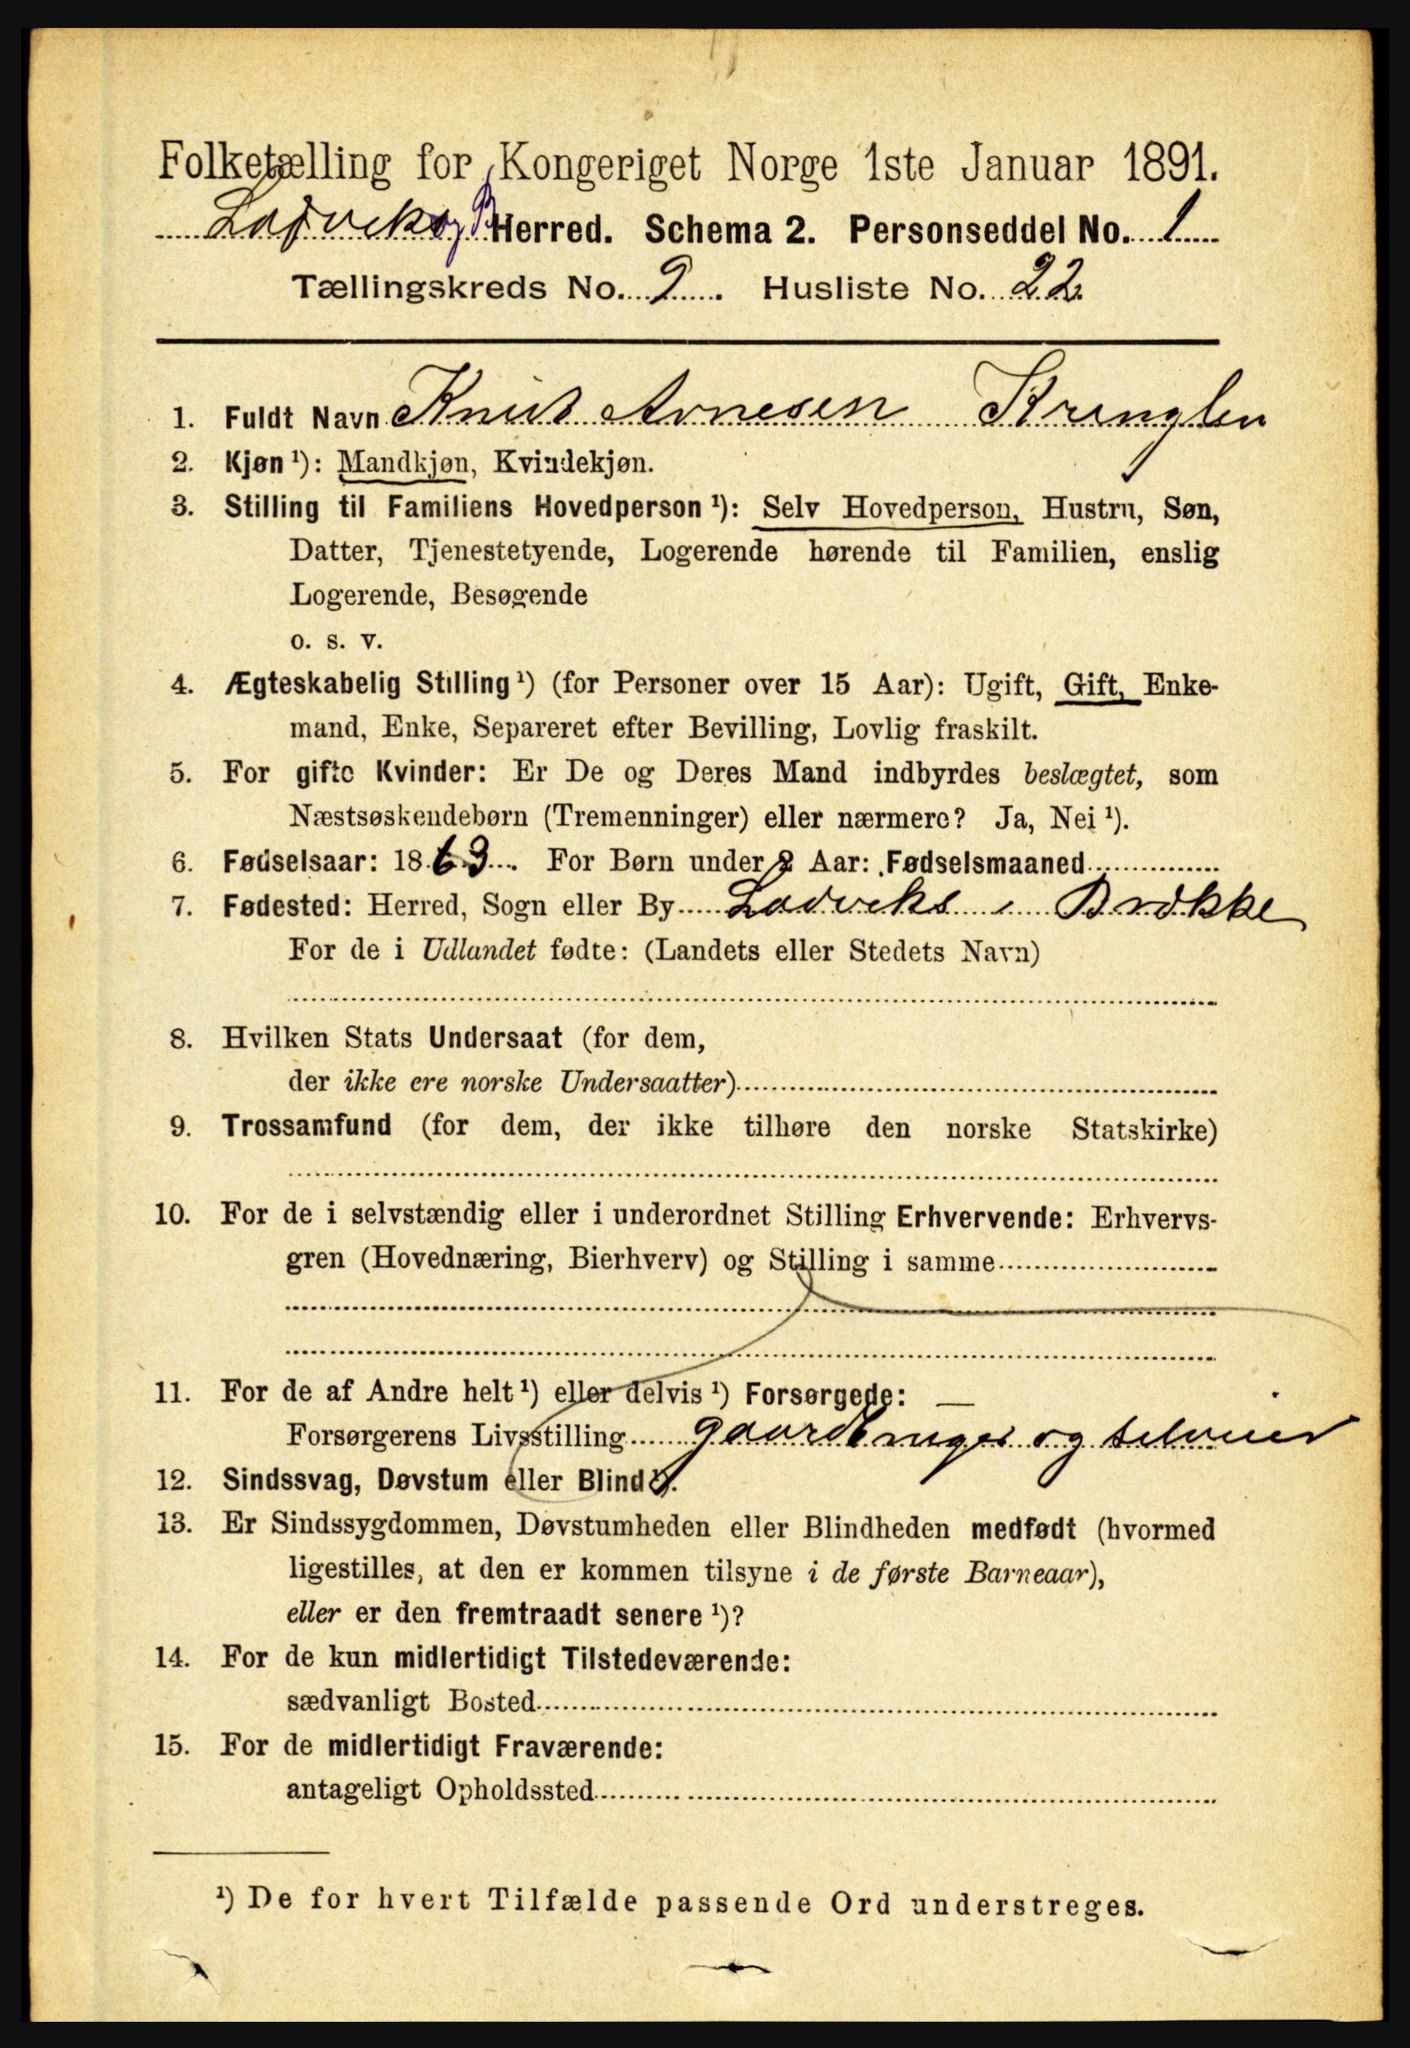 Folketælling for Kongeriget Norge 1ste Januar 1891.
Ladvik og B Herred. Schema 2. Personseddel No. 1
Tællingskreds No. 9. Husliste No. 22
1. Fuldt Navn Knut Arnesen Kringlen
2. Kjøn ¹): Mandkjøn, Kvindekjøn.
3. Stilling til Familiens Hovedperson ¹): Selv Hovedperson, Hustru, Søn,
Datter, Tjenestetyende, Logerende hørende til Familien, enslig
Logerende, Besøgende
o. s. v.
4. Ægteskabelig Stilling ¹) (for Personer over 15 Aar): Ugift, Gift, Enke-
mand, Enke, Separeret efter Bevilling, Lovlig fraskilt.
5. For gifte Kvinder: Er De og Deres Mand indbyrdes beslægtet, som
Næstsøskendebørn (Tremenninger) eller nærmere? Ja, Nei ¹).
6. Fødselsaar: 1863. For Børn under 2 Aar: Fødselsmaaned
7. Fødested: Herred, Sogn eller By Ladviks, Brække
For de i Udlandet fødte: (Landets eller Stedets Navn)
8. Hvilken Stats Undersaat (for dem,
der ikke ere norske Undersaatter)
9. Trossamfund (for dem, der ikke tilhøre den norske Statskirke)
10. For de i selvstændig eller i underordnet Stilling Erhvervende: Erhvervs-
gren (Hovednæring, Bierhverv) og Stilling i samme
11. For de af Andre helt ¹) eller delvis ¹) Forsørgede: —
Forsørgerens Livsstilling gaardbruger og selveier
12. Sindssvag, Døvstum eller Blind ¹).
13. Er Sindssygdommen, Døvstumheden eller Blindheden medfødt (hvormed
ligestilles, at den er kommen tilsyne i de første Barneaar),
eller er den fremtraadt senere ¹)?
14. For de kun midlertidigt Tilstedeværende:
sædvanligt Bosted
15. For de midlertidigt Fraværende:
antageligt Opholdssted
¹) De for hvert Tilfælde passende Ord understreges.